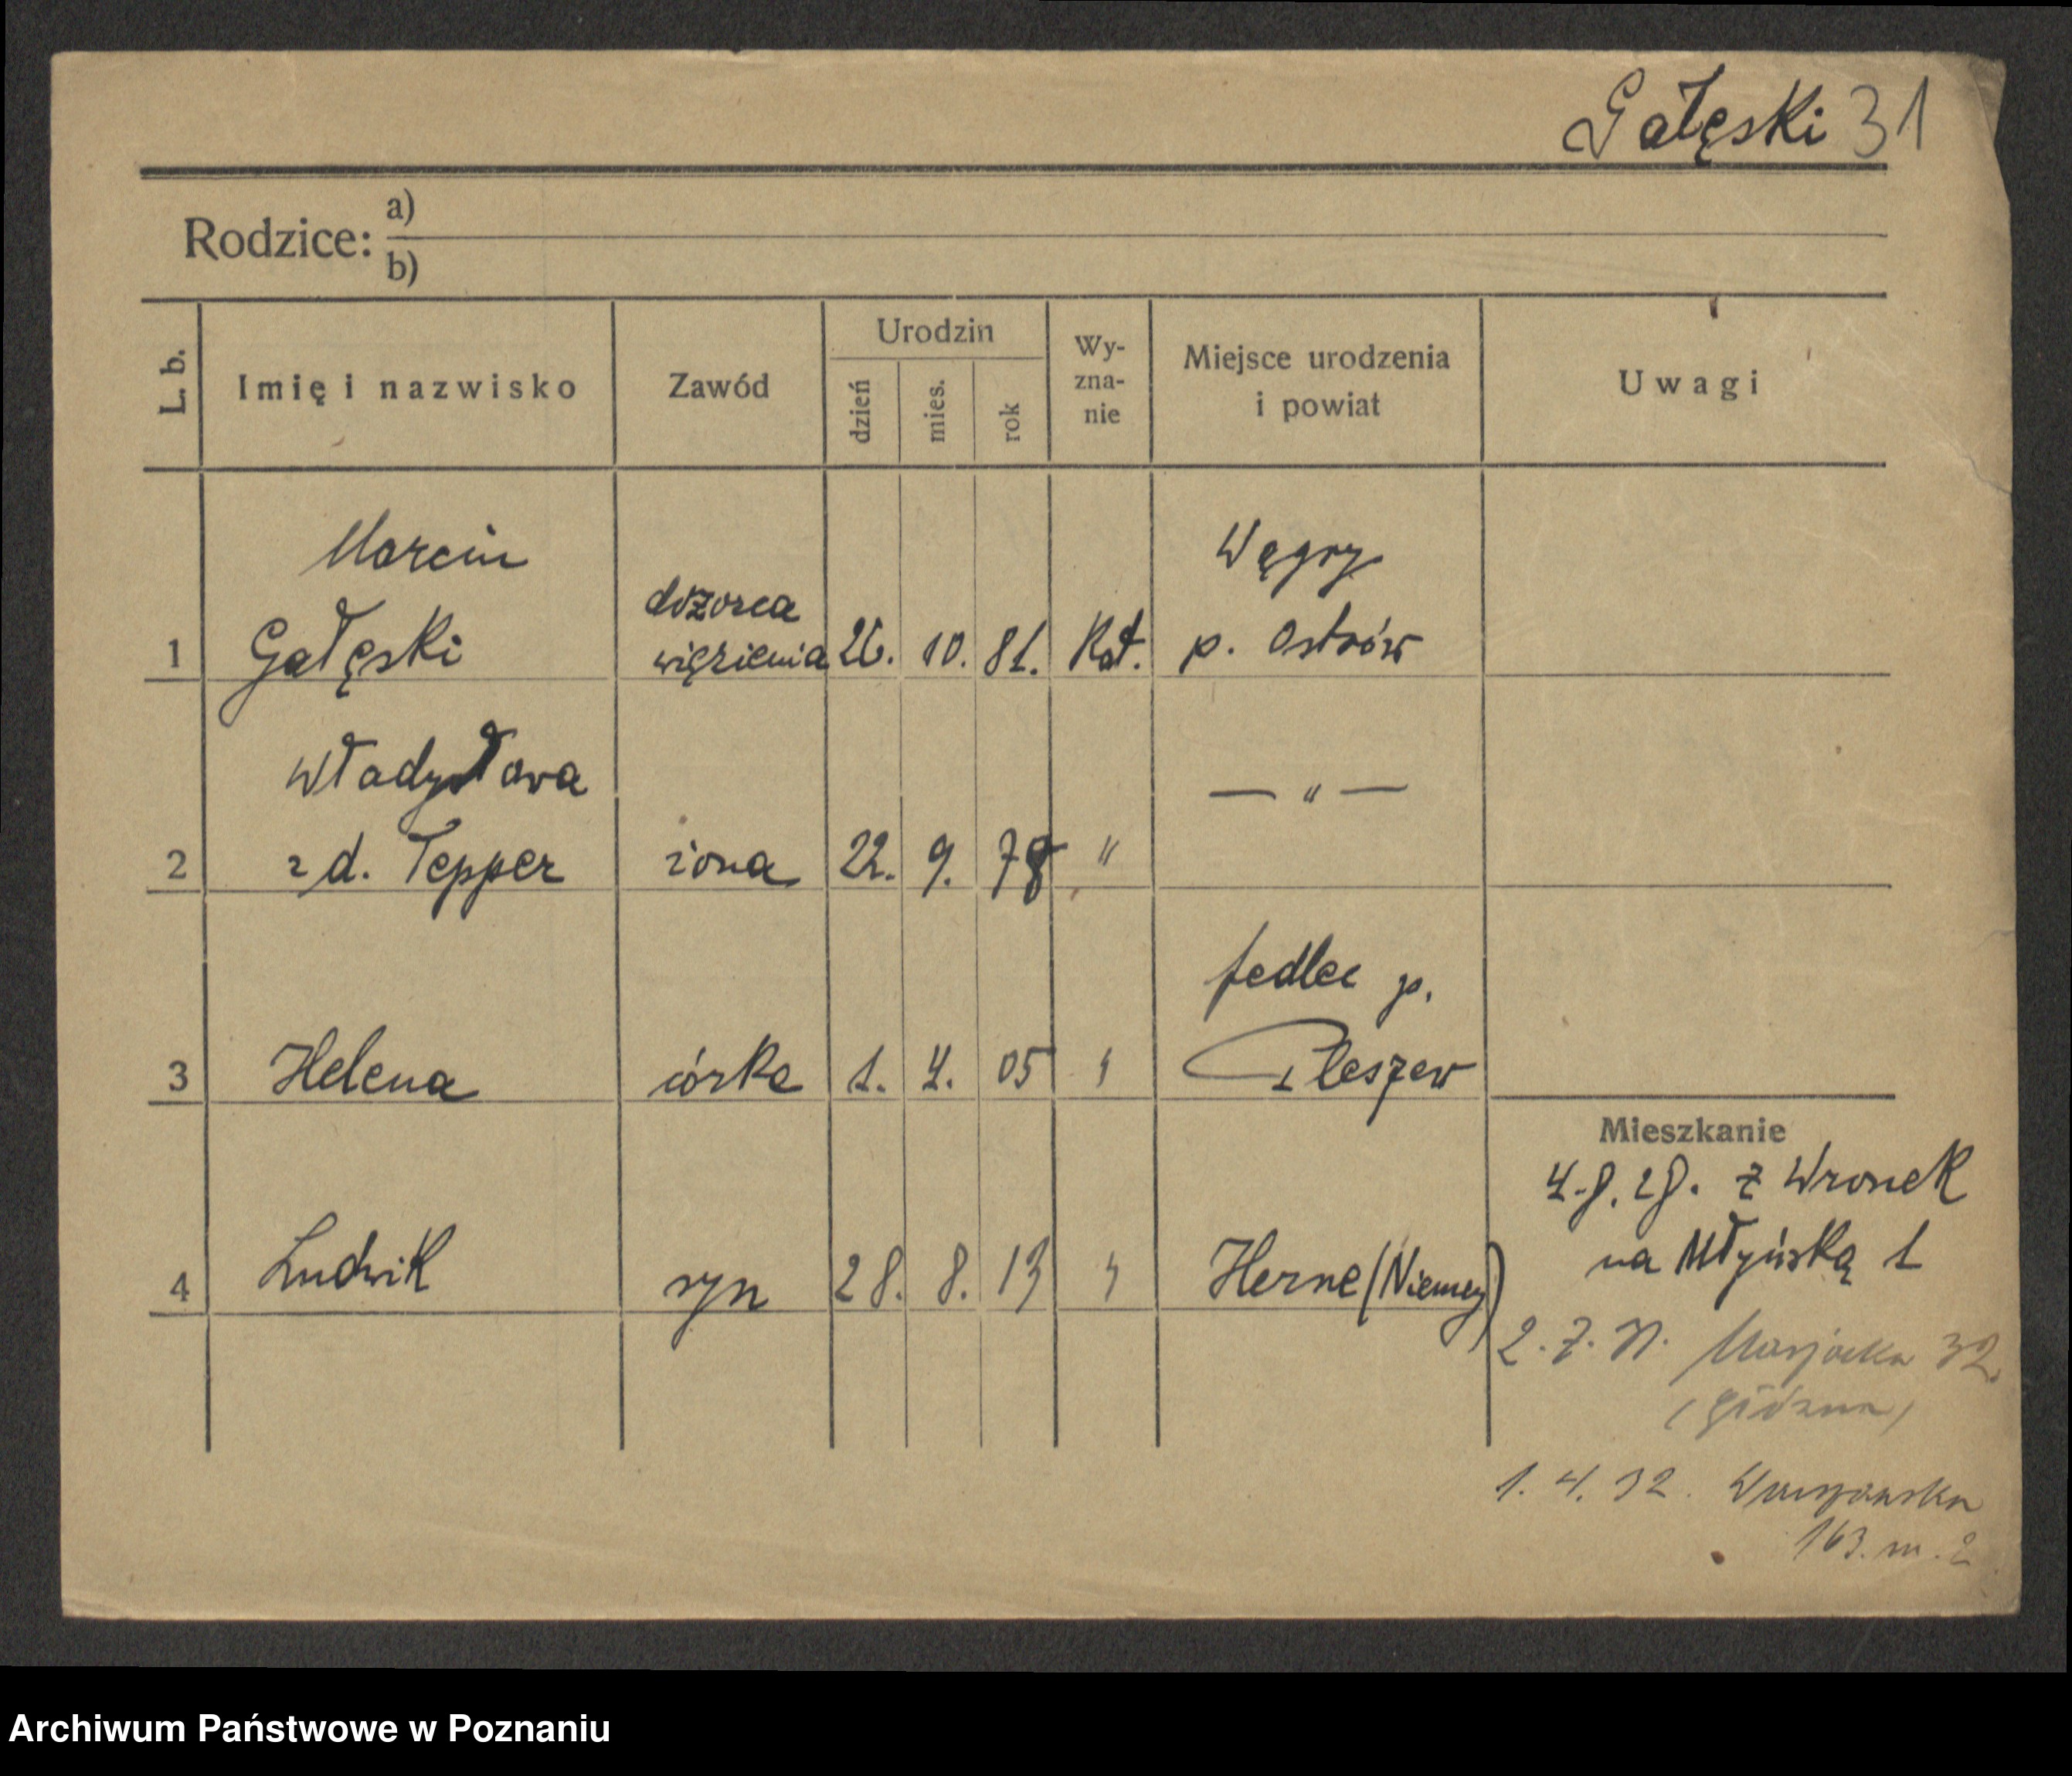 Gałęski 31
Rodzice: a)
b)
L. b.
Imię i nazwisko
Zawód
Urodzin
dzień
mies.
rok
Wy-
zna-
nie
Miejsce urodzenia
i powiat
Uwagi
Marcin
Gałęski
1
dozorca
więzienia
26. 10. 81. Kat.
Węgry
p. Ostrów
Władysława
2 z d. Tepper żona 22. 9. 78 "
— " —
3 Helena córka 1. 4. 05 "
Jedlec p.
Pleszew
4 Ludwik syn 28. 8. 13 "
Herne (Niemcy)
Mieszkanie
4.8.28. z Wronek
na Młyńską 1
2.7.31. 32.
1.4.32.
163. m. 2
Archiwum Państwowe w Poznaniu